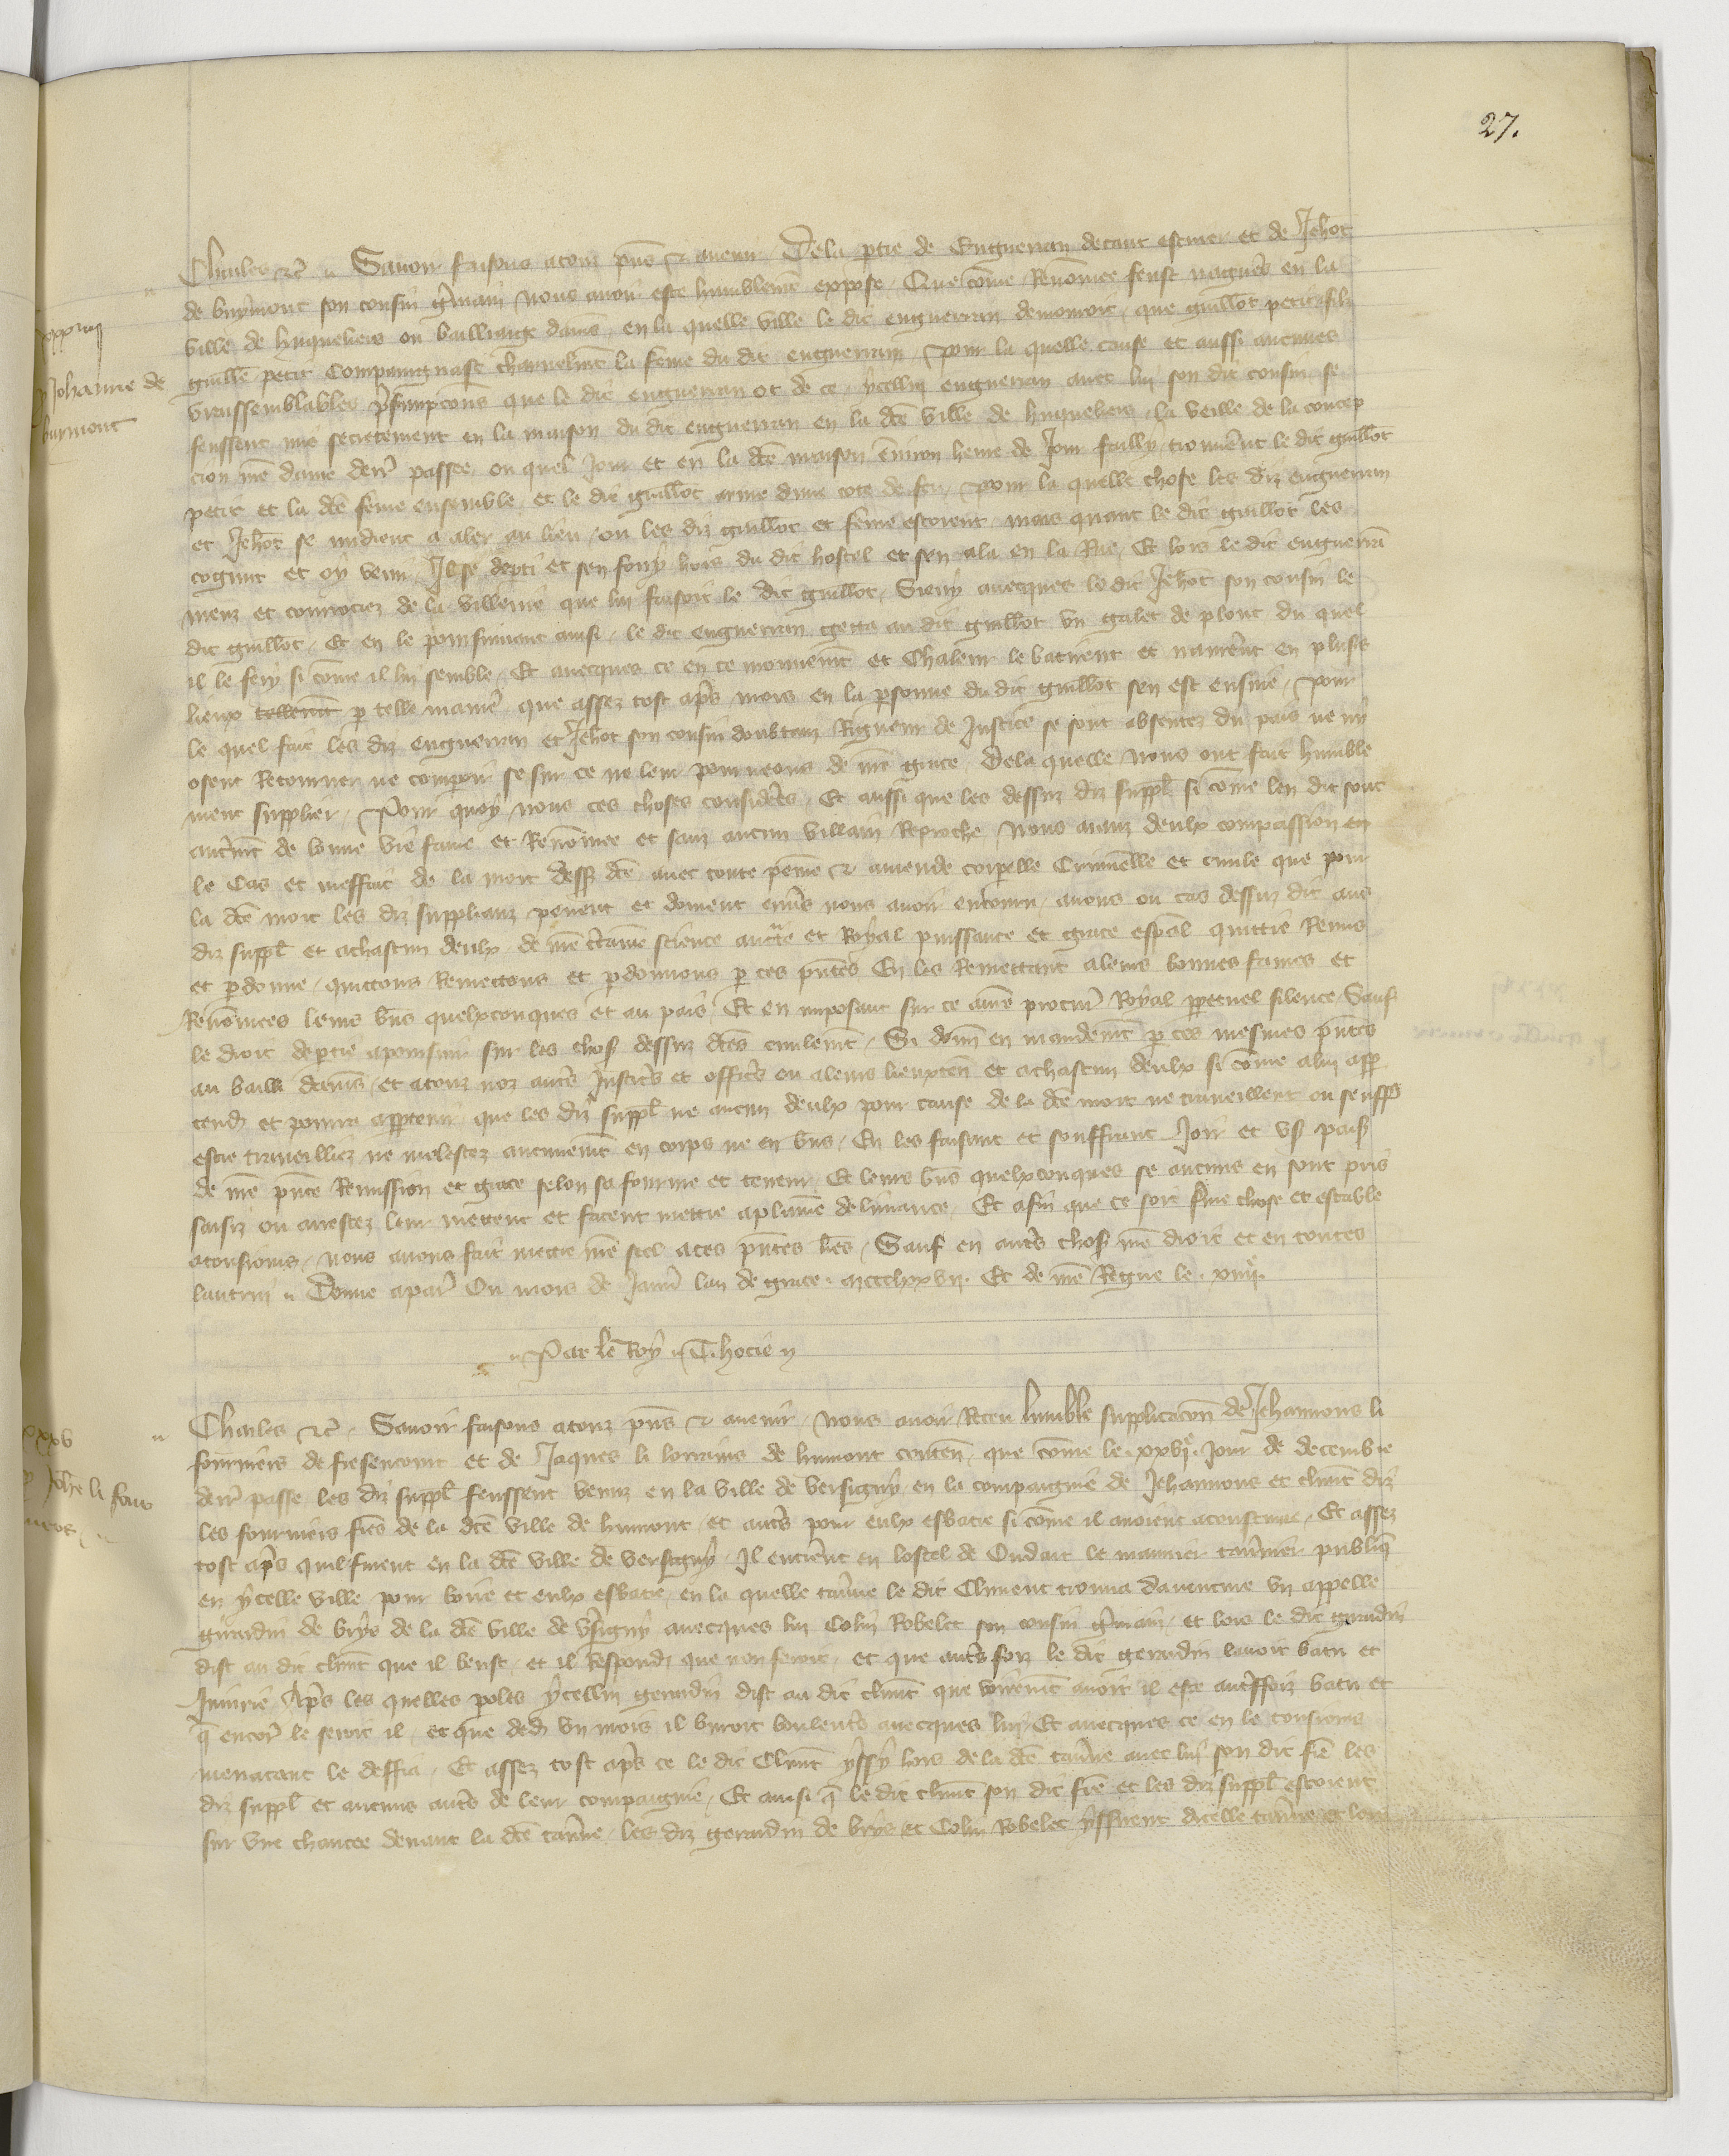 27.
Charles etc. Savoir faisons a touz pñs et avenir. De la ptie de Enguerran de caut escuier et de Jehõt
de buymont son cousin g̃main nous avoir esté humblemẽt exposé. Que cõme Renõmee feust naguẽs en la
ville de huqueliers ou bailliage damiẽs, en la quelle ville le dit enguerran demouroit, que guillõt petit filz
guillẽ petit Compaingnast charnelmẽt la feme du dit enguerran. Pour la quelle cause et aussi aucunes
vraissemblables p̃sumpcõns que le dit enguerran ot de ce, ycellui enguerran avec lui son dit cousin se
feussent mis secretement en la maison du dit enguerran en la dcẽ ville de huqueliers, la veille de la concep
cion nr̃e dame derr̃ passee, ou quel jour et en la dcẽ maison environ heure de Jour failly, trouvẽrent le dit guillot
petit et la dcẽ feme ensemble, et le dit guillot armé dune cote de fer, Pour la quelle chose les diz enguerran
et Jehõt se midrent a aler au lieu ou les diz guillot et feme estoient, mais quant le dit guillot les
cognut et oy venir, Il se dẽpti et sen fouy hors du dit hostel et sen ala en la Rue, Et lors le dit enguerrã
meuz et courrociez de la villenie que lui faisoit le dit guillot, Suivy avecques le dit Jehõt son cousin le
dit guillot, Et en le poursuivant ainsi, le dit enguerran getta au dit guillot un galet de plont du quel
il le fery si cõme il lui semble, Et avecques ce en ce mouvemẽt et Chaleur le batirent et navrẽrent en plusrs
lieux tellemẽt p telle maniẽ, que assez tost apr̃s mors en la psonne du dit guillot sen est ensuie, Pour
le quel fait les diz enguerran et Jehot son cousin doubtanz Rigueur de Justice se sont absentez du pais ne ni
osent Retourner ne comparoir se sur ce ne leur pourveons de nr̃e grace, De la quelle nous ont fait humble
ment supplier, Pour quoy nous ces choses considẽrees, Et aussi que les dessuz diz suppl̃ si cõme len dit sont
autrem̃t de bonne vie fame et Renõmee et sanz aucun villain Reproche, Nous aianz deulx compassion en
le Cas et meffait de la mort dess9 dcẽ avec toute peine et amende corpelle Criminelle et civile que pour
la dcẽ mort les diz supplianz pevent et doivent envers nous avoir encouru, avons ou cas dessuz dit aus
diz suppl̃ et a chascun deulx de nr̃e c̃taine science auctẽ et Royal puissance et grace espal̃ quittié Remis
et pdonné, quittons Remettons et pdonnons p ces pñtes En les Remettant a leurs bonnes fames et
Renõmees leurs biẽs quelxconques et au pais, Et en imposant sur ce a nr̃e procur̃ Royal ppetuel silence, Sauf
le droit de ptie a poursuir sur les chos9 dessuz dcẽs civilemẽt, Si donñ en mandemẽt p ces mesmes pñtes
au bailli damiẽs, et a touz noz autr̃s Justicr̃s et officr̃s ou a leurs lieuxteñ et a chascun deulx si cõme a lui app
tend̃ et pourra apptenir, que les diz suppl̃ ne aucun deulx pour cause de la dcẽ mort ne traveillent ou seuff̃
estre traveilliez ne molestez aucunemẽt en corps ne en biẽs, En les faisant et souffrant Joir et us9 paisi9
de nr̃e pñte Remission et grace selon sa fourme et teneur, Et leurs biẽs quelxconques se aucuns en sont pris
saisiz ou arrestez leur mettent et facent mettre a plainẽ delivrance, Et afin que ce soit ferme chose et estable
a tousjours, Nous avons fait mettre nr̃e seel a ces pñtes lr̃es, Sauf en autr̃s chos9 nr̃e droit et en toutes
lautrui. Donné a par̃ Ou mois de Janv̄ lan de grace mccclxxvii. Et de nr̃e Regne le xiiii.
Par le Roy. T. hocie
Charles etc. Savoir faisons a touz pñs et avenir. Nous avoir Receu lumble supplicacõn de Jehannons li
fourniers de fresencourt et de Jaques li lorrains de humont conteñ. que cõme le xxvi. Jour de decembre
derr̃ passé les diz suppl̃ feussent venuz en la ville de versigny en la compaignie de Jehannons et climẽt diz
les fourniers frẽs de la dcẽ ville de humont, et autr̃s pour eulx esbatre si cõme il avoient acoustumé. Et assez
tost apr̃s quil furent en la dcẽ ville de versigny, Il entrẽrent en lostel de Oudart le maurier tavernier publiq̃
en ycelle ville pour boire et eulx esbatre, en la quelle tav̄ne le dit Climent trouva daventure un appellé
girardin de brys de la dcẽ ville de v̄signy avecques lui Colin Robelet son cousin g̃main, et lors le dit gerardin
dist au dit climẽt que il beust, et il Respond̃ que non feroit, et que autr̃s foiz le dit gerardin lavoit batu et
Injurié, Apr̃s les quelles poles ycellui gerardin dist au dit climẽt que voiremẽt avoit il esté autr̃ffoiz batu et
q̃ encor̃ le seroit il, et que ded̃ un mois il buroit voulentr̃s avecques lui, Et avecques ce en le tousjours
menaçant le deffia, Et assez tost apr̃s ce le dit Climẽt yssy hors de la dcẽ tav̄ne avec lui son dit frẽ les
diz suppl̃ et aucuns autr̃s de leur compaignie, Et ainsi q̃ le dit climẽt son dit frẽ et les diz suppl̃ estoient
sur une chaucee devant la dcẽ tav̄ne, les diz gerardin de brys et Colin Robelet yssirent dicelle tav̄ne et lors
Johanne de
burmont
xxxv
Johẽ li four